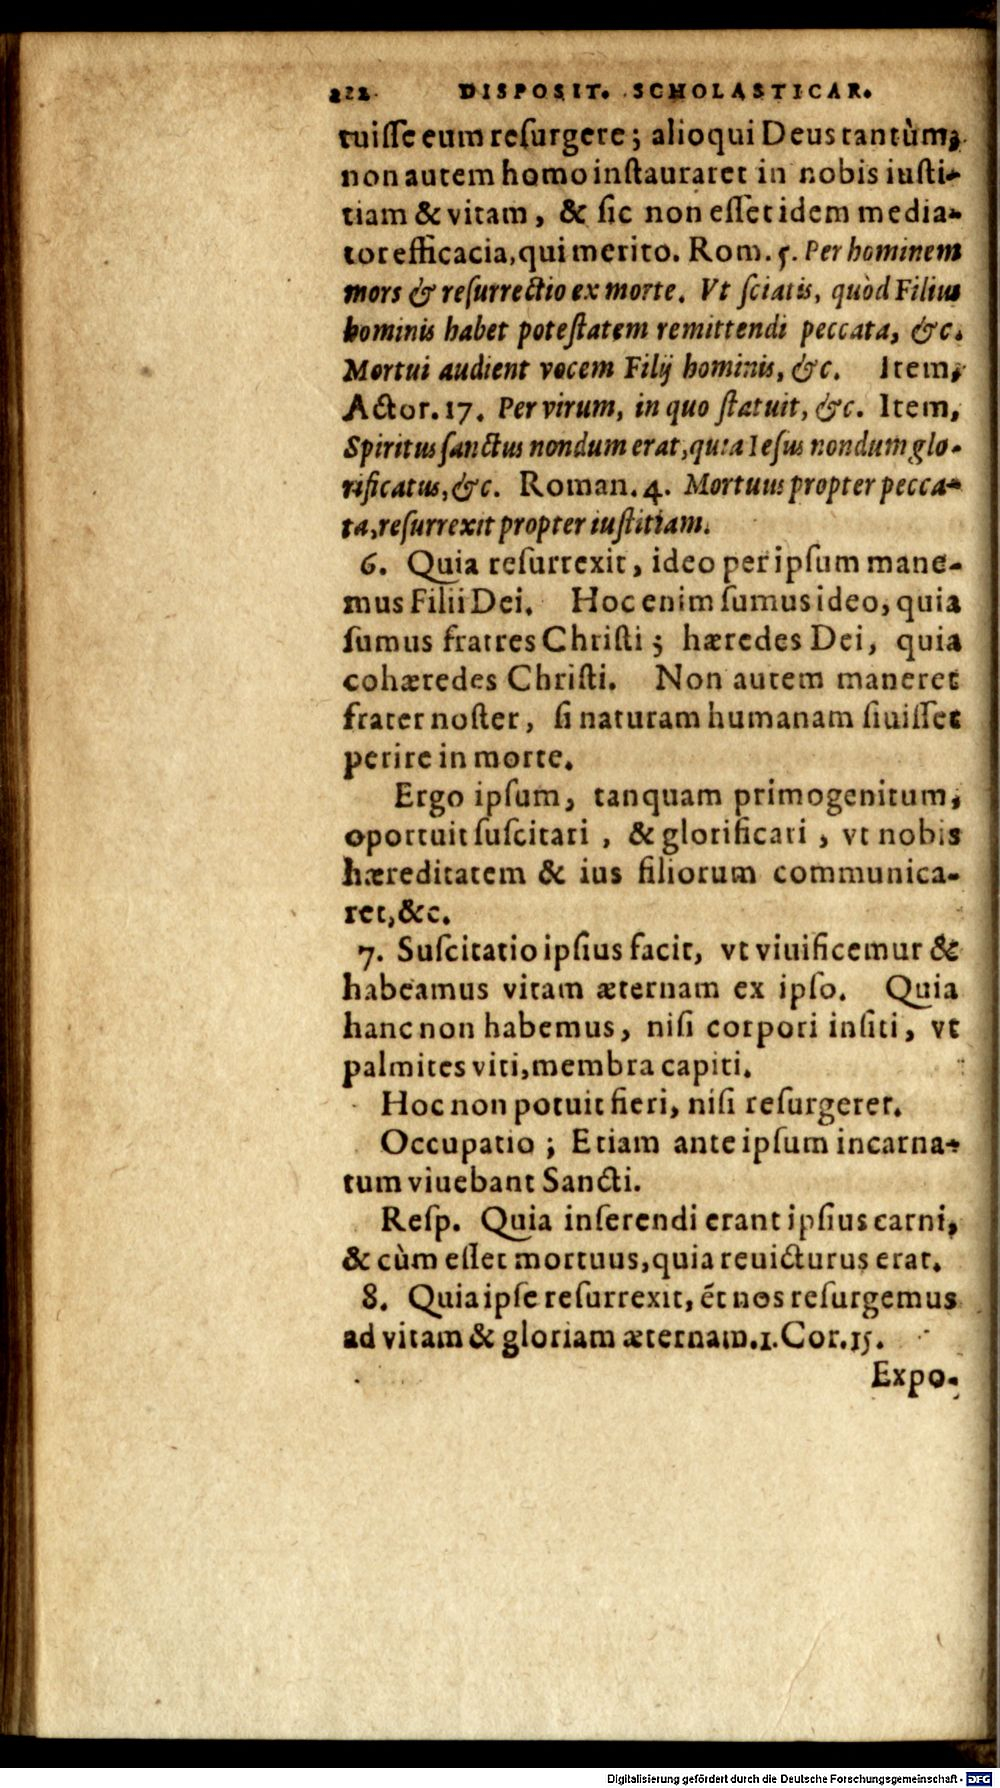 222 DISPOSIT. SCHOLASTICAR.
tuiſſe eum reſurgere; alioqui Deus tantùm,
non autem homo inſtauraret in nobis iuſti-
tiam & vitam, & ſic non eſſet idem media-
tor efficacia, qui merito. Rom. 5. Per hominem
mors & reſurrectio ex morte. Vt ſciatis, quòd Filius
hominis habet poteſtatem remittendi peccata, &c.
Mortui audient vocem Filij hominis, &c. Item,
Actor. 17. Per virum, in quo ſtatuit, &c. Item,
Spiritus ſanctus nondum erat, quia Ieſus nondum glo-
rificatus, &c. Roman. 4. Mortuus propter pecca-
ta, reſurrexit propter iuſtitiam.
6. Quia reſurrexit, ideo per ipſum mane-
mus Filii Dei. Hoc enim ſumus ideo, quia
ſumus fratres Chriſti; hæredes Dei, quia
cohæredes Chriſti. Non autem maneret
frater noſter, ſi naturam humanam ſiuiſſet
perire in morte.
Ergo ipſum, tanquam primogenitum,
oportuit ſuſcitari, & glorificari, vt nobis
hæreditatem & ius filiorum communica-
ret, &c.
7. Suſcitatio ipſius facit, vt viuificemur &
habeamus vitam æternam ex ipſo. Quia
hanc non habemus, niſi corpori inſiti, vt
palmites viti, membra capiti.
Hoc non potuit fieri, niſi reſurgeret.
Occupatio; Etiam ante ipſum incarna-
tum viuebant Sancti.
Reſp. Quia inſerendi erant ipſius carni,
& cùm eſſet mortuus, quia reuicturus erat.
8. Quia ipſe reſurrexit, ét nos reſurgemus
ad vitam & gloriam æternam. 1. Cor. 15.
Expo-
Digitalisierung gefördert durch die Deutsche Forschungsgemeinschaft - DFG